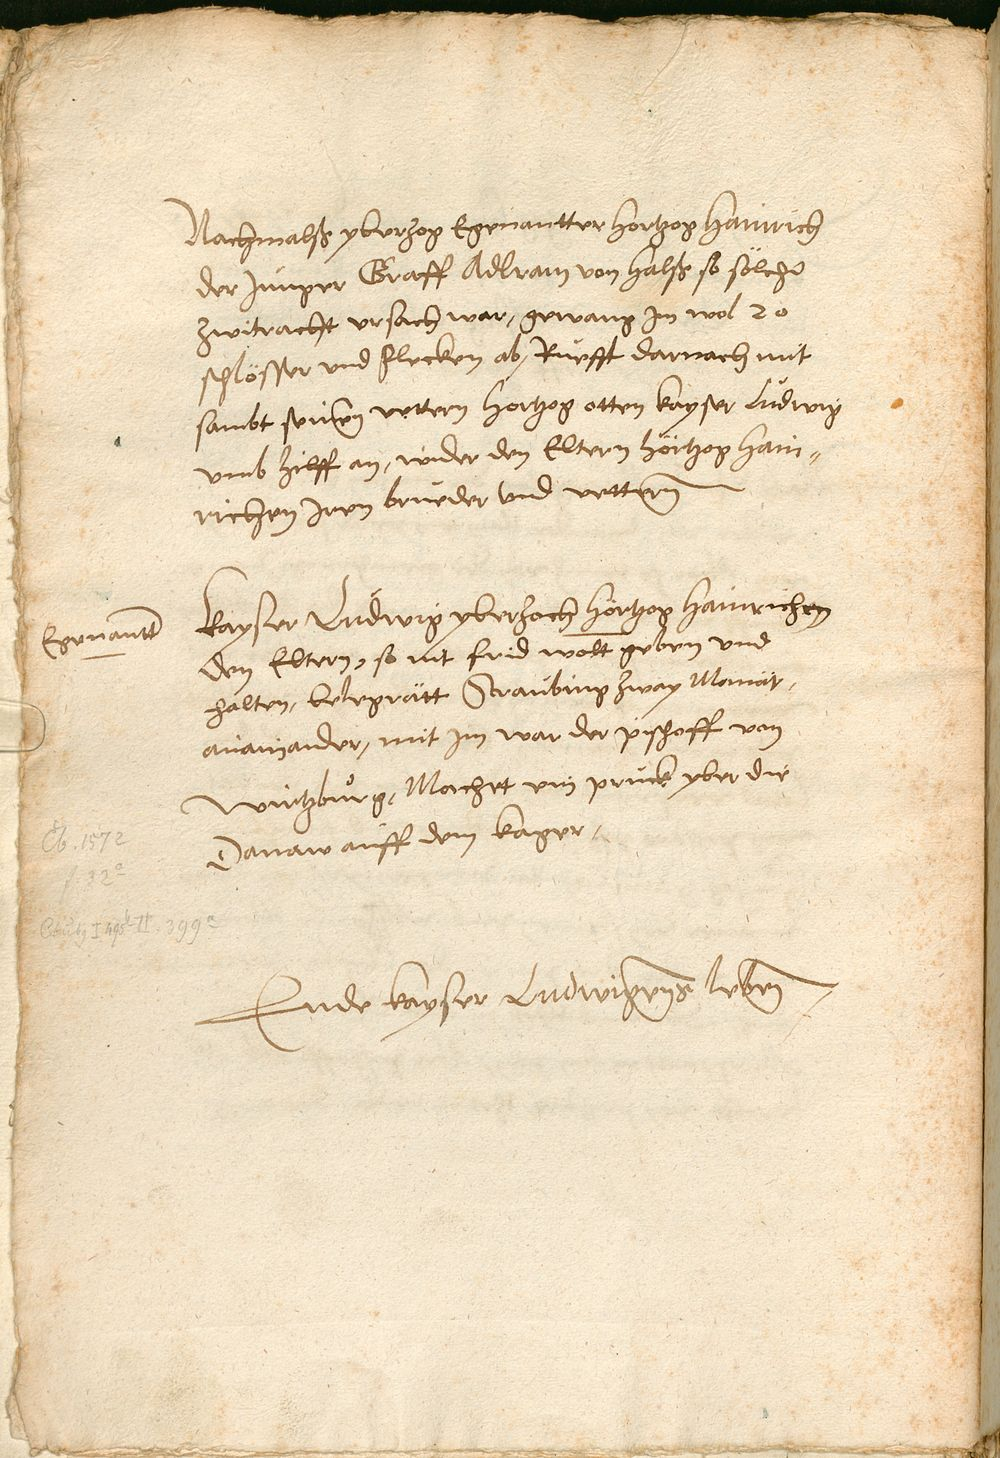 Nachmalß yberzog Egenantter hertzog Hainrich
der Junger Graff Adlram von halß so sölcher
zwitracht vrsach war, gewang im wol 20
schlösser vnd flecken ab, Rüefft darnach mit
sambt seinen vettern hertzog otten kayser Ludwig
vmb hilff an, wider den Eltern hörtzog Hain„
richen Iren brueder vnd vettern
Egenantt
kayser Ludwig yberzoch hörtzog Hainrichen
den Eltern, so nit frid wolt geben vnd
halten, belegrätt Straubing zway Monat,
anainander, mit im war der pischoff von
Wirtzburg, Machet ein pruck yber die
Danaw auff dem lager,
Cb. 1572
f. 32
399
Ende kayser Ludwigens leben